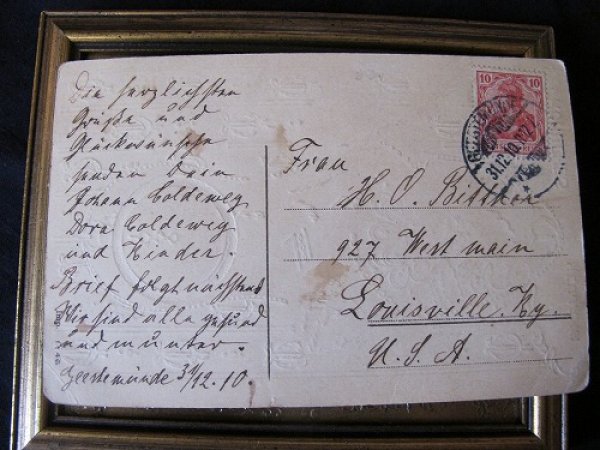 Die herzlichsten
Grüße und
Glückwünsche
senden Dein
Johann Coldeweg
Dora Coldeweg
und Kinder.
Brief folgt nächstens
Wir sind alle gesund
und munter.
Geestemünde 31/12.10.
10 10
31.12.10
Frau
H. O.
927 West main
Louisville. Ky.
U. S. A.